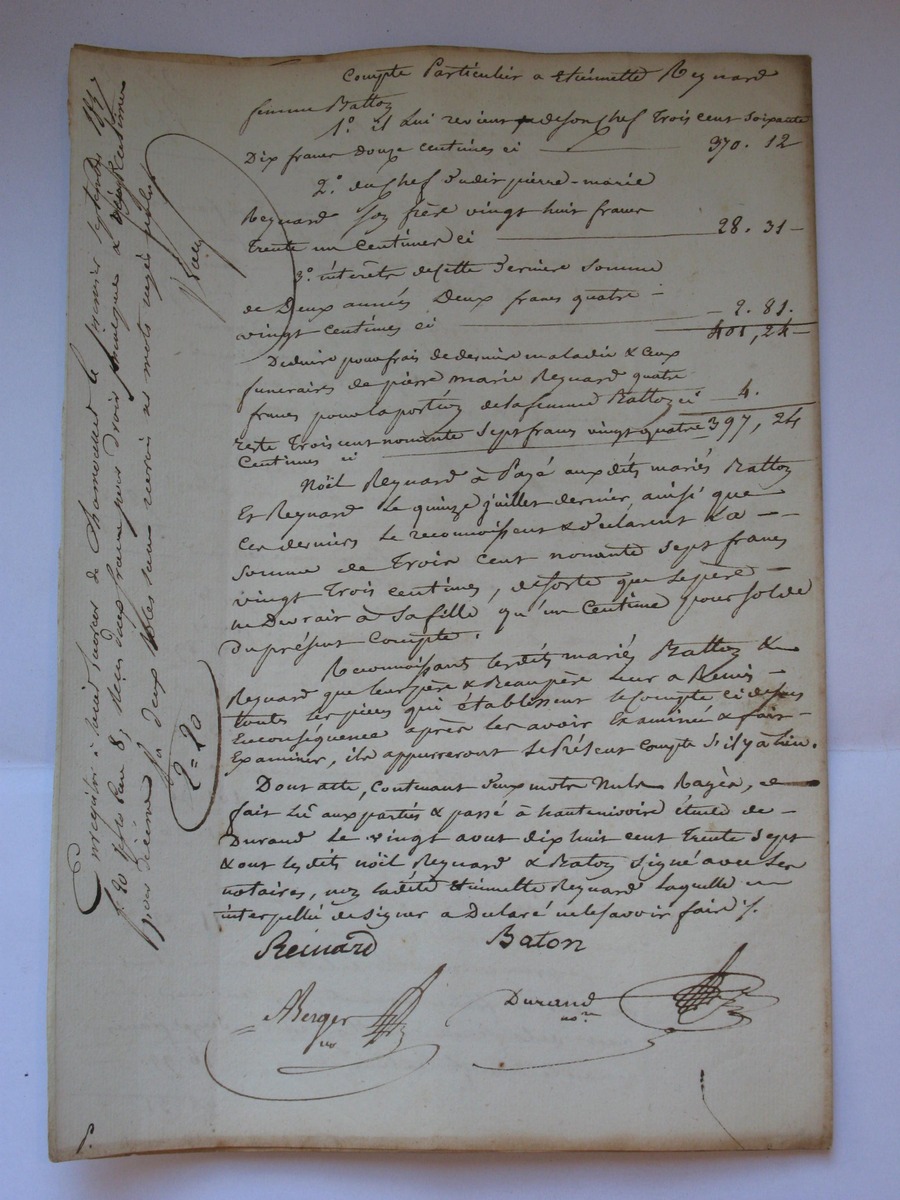 Compte Particulier a Etiennette Reynard
femme Batton
1.° il Lui revient de son chef Trois cent Soixante
Dix francs Douze centimes ci 370. 12
2.° du chef dudit pierre-marie
Reynard Son frère vingt huit francs
Trente un Centimes ci 28. 31
3.° intérêts de cette Dernière Somme
de Deux années Deux francs quatre
vingt centimes ci 2. 81.
401, 24
Déduire pour frais de derniere maladie & ceux
funeraires de pierre marie Reynard quatre
francs pour la portion de la femme Batton ci 4.
reste Trois cent nonante Sept francs vingt quatre 397, 24
Centimes ci
Nöel Reynard à Payé auxdits mariés Batton
Et Reynard Le quinze juillet dernier, ainsi que
Ces derniers Le reconnoissent & déclarent La
Somme de Trois Cent nonante Sept francs
vingt Trois centimes, de sorte que le père
ne Devrait à Sa fille qu'un Centime pour Solde
Du présent Compte.
Reconnoissant lesdits mariés Batton &
Reynard que leur père & Beaupère Leur a Remis
toutes les pièces qui établissent le compte ci dessus
En conséquence après les avoir Examiné & fait
Examiner, ils appurreront Le Présent Compte S'il y a lieu.
Dont acte, Contenant deux mots Nuls Rayés,
fait Lû aux parties & passé à hauterivoire étude de
Durand Le vingt aout dix huit cent Trente Sept
& ont lesdits nöel Reynard & Baton Signé avec les
notaires, non ladite Etiennette Reynard Laquelle
interpellée de signer a Déclaré ne le savoir faire /.
Reinard Baton
ABerger Durand
nre nre
Enregistré à Saint Laurent de Chamousset le premier septembre 1837
f. 20 Vo Case 8, Reçu deux francs pour droit
deux mots rayés nuls
2=20